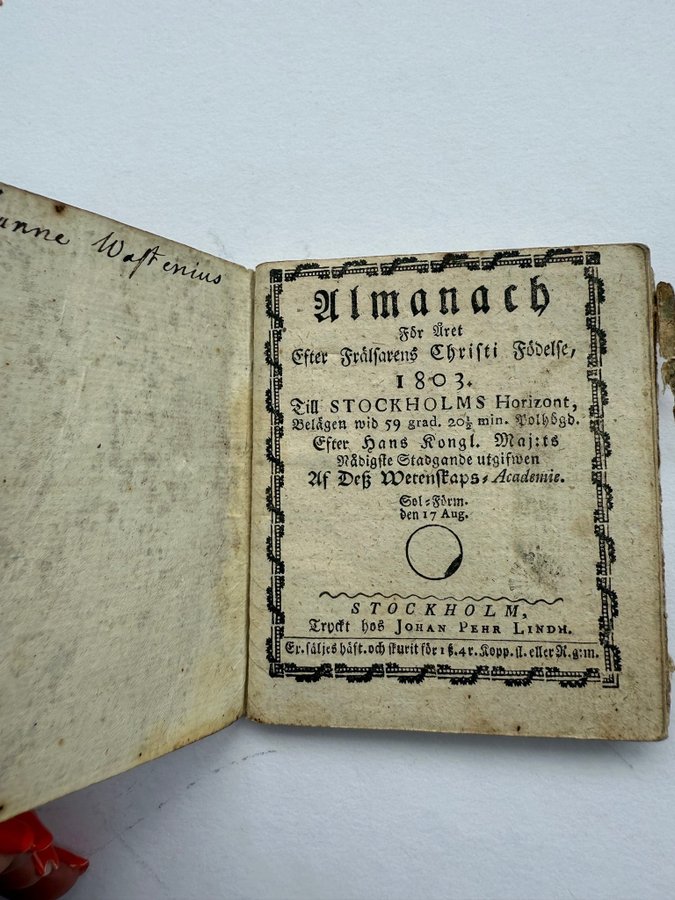 Wastenius
Almanach
För Året
Efter Frälsarens Christi Födelse,
1803.
Till STOCKHOLMS Horizont,
Belägen wid 59 grad. 20½ min. Polhögd.
Efter Hans Kongl. Maj:ts
Nådigste Stadgande utgifwen
Af Deß Wetenskaps-Academie.
Sol-Förm.
den 17 Aug.
STOCKHOLM,
Tryckt hos JOHAN PEHR LINDH.
Ex. säljes häft. och skurit för 1 ß. 4 r. Kopp. sl. eller R. g:m.